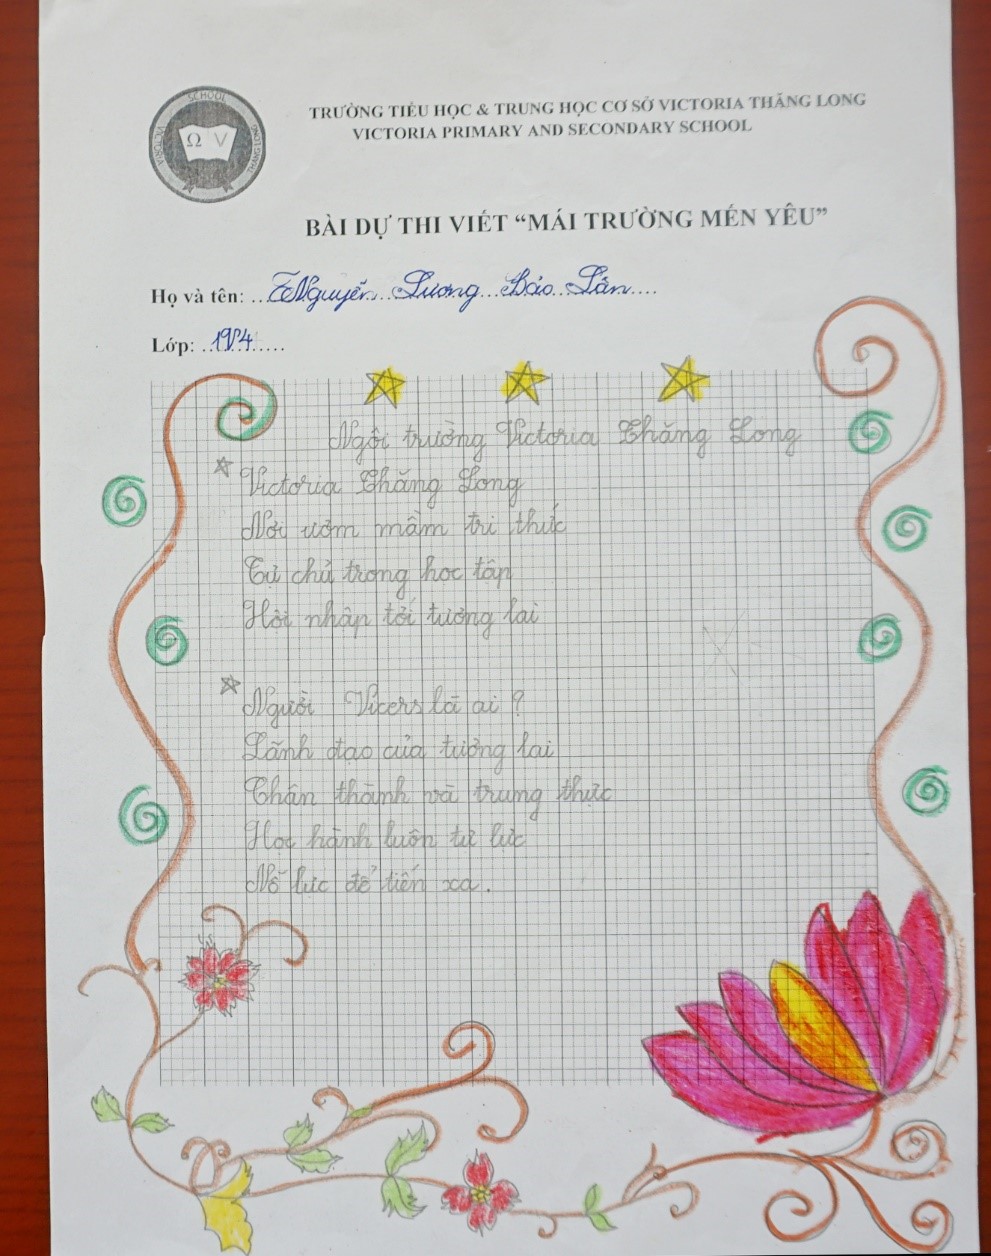 SCHOOL
VICTORIA
THANG LONG
Ω V
TRƯỜNG TIỂU HỌC & TRUNG HỌC CƠ SỞ VICTORIA THĂNG LONG
VICTORIA PRIMARY AND SECONDARY SCHOOL
BÀI DỰ THI VIẾT “MÁI TRƯỜNG MẾN YÊU”
Họ và tên: Nguyễn Lương Bảo
Lớp:
Ngôi trường Victoria Thăng Long
Victoria Thăng Long
Nơi ươm mầm tri thức
Tự chủ trong học tập
Hội nhập tới tương lai
Người Vicers là ai ?
Lãnh đạo của tương lai
Chân thành và trung thực
Học hành luôn tự lực
Nỗ lực để tiến xa.